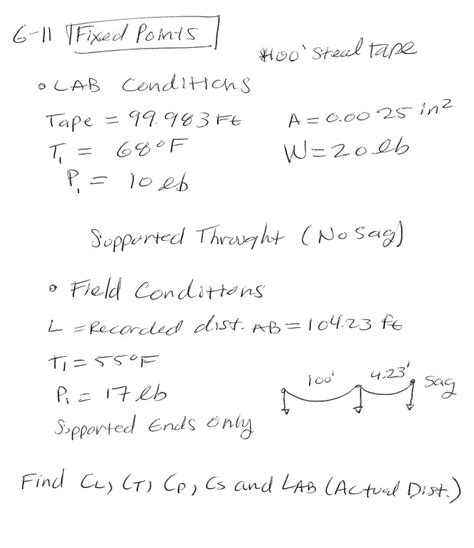 6-11 Fixed Points
#100' Steel tape
• LAB Conditions
Tape = 99.983 Ft A = 0.0025 in²
T₁ = 68°F W = 20 lb
P₁ = 10 lb
Supported Throught (No sag)
• Field Conditions
L = Recorded dist. AB = 104.23 ft
T₁ = 55°F
P₁ = 17 lb
100' 4.23' sag
Supported Ends Only
Find CL, CT, CP, CS and LAB (Actual Dist.)